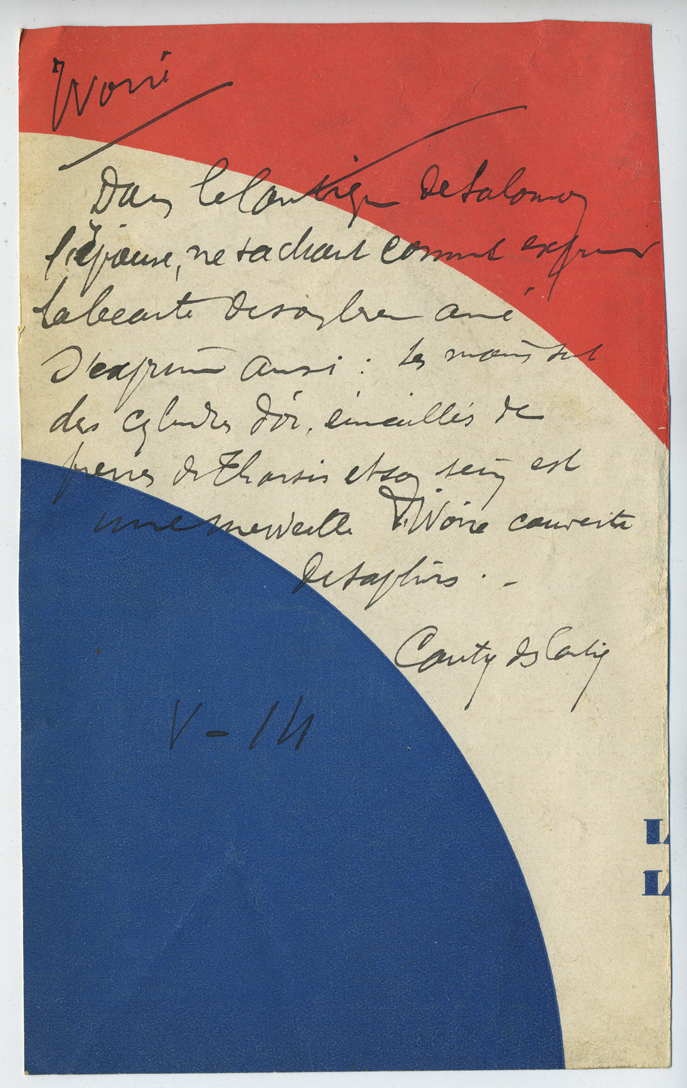 Ivoire
Dans le Cantique de Salomon
l'épouse, ne sachant comment exprimer
la beauté de son bien aimé
s'exprime ainsi : Ses mains sont
des cylindres d'or, émaillés de
pierres de Tharsis et son sein est
une merveille d'Ivoire couverte
de saphirs. -
Cantiq des Cantiq
V - 14